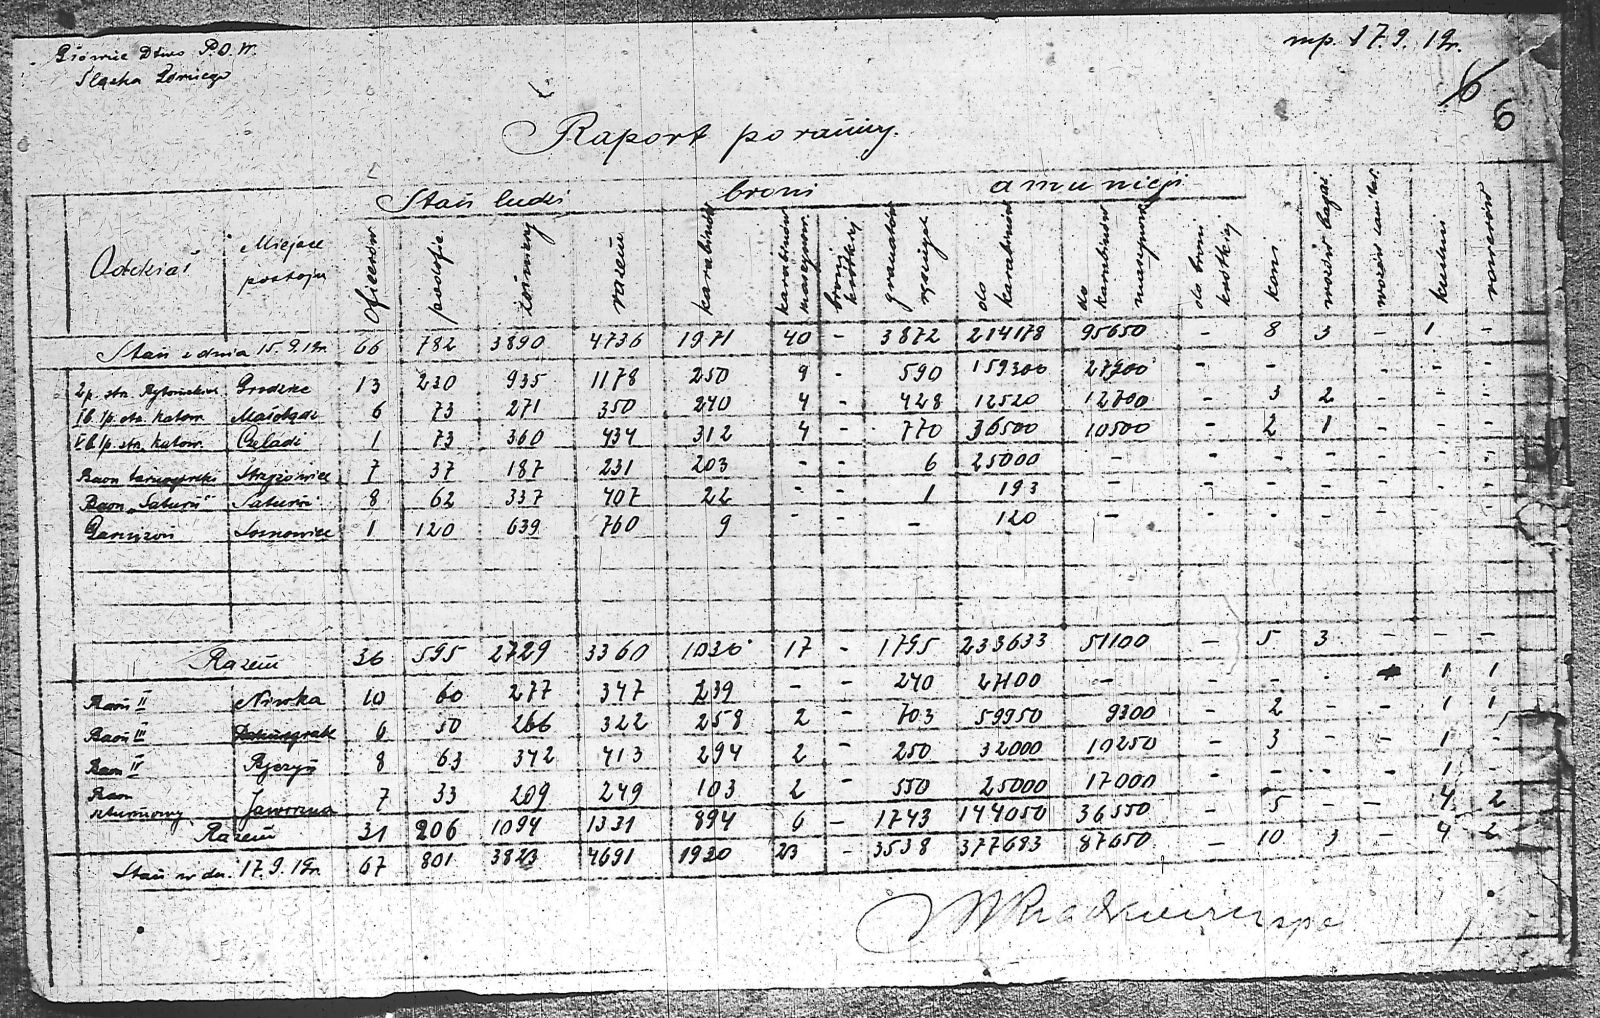 Główne Dtwo P.O.W.
Śląska Górnego
mp. 17.9.19r.
6
6
Raport poranny.
Oddział
Miejsce postoju
Stan ludzi
broni
amunicji
oficerów
podofic.
żołnierzy
razem
karabinów
karabinów maszynow.
broni krótkiej
granatów ręcznych
do karabinów
do karabinów maszynow.
do broni krótkiej
koni
wozów bagaż.
wozów sanitar.
kuchni
rowerów
Stan z dnia 15.9.19r. 66 782 3890 4736 1971 40 - 3872 214178 95650 - 8 3 - 1 -
2p. strz. Bytomskich Grodziec 13 230 935 1178 250 9 - 590 159300 27900 - - - - - -
I b. 1p. strz. katow. Małobądz 6 73 271 350 240 4 - 428 12520 12700 - 3 2 - - -
II b. 1p. strz. katow. Czeladź 1 73 360 434 312 4 - 770 36500 10500 - 2 1 - - -
Baon tarnogórski Strzyżowice 7 37 187 231 203 - - 6 25000 - - - - - - -
Baon "Saturn" Saturn 8 62 337 407 22 - - 1 193 - - - - - - -
Garnizon Sosnowiec 1 120 639 760 9 - - - 120 - - - - - - -
Razem 36 595 2729 3360 1036 17 - 1795 233633 51100 - 5 3 - - -
Baon II Niwka 10 60 277 347 239 - - 240 27100 - - - - - 1 1
Baon III 6 50 266 322 258 2 - 703 59950 9300 - 2 - - 1 1
Baon IV 8 63 342 413 294 2 - 250 32000 10250 - 3 - - 1 -
Baon szturmowy Jaworzno 7 33 209 249 103 2 - 550 25000 17000 - - - - 1 -
Razem 31 206 1094 1331 894 6 - 1743 144050 36550 - 5 - - 4 2
Stan w dn. 17.9.19r. 67 801 3823 4691 1930 23 - 3538 377683 87650 - 10 3 - 4 2